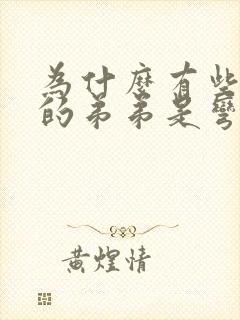 為什麼有些
的弟弟是彎
黃煌情